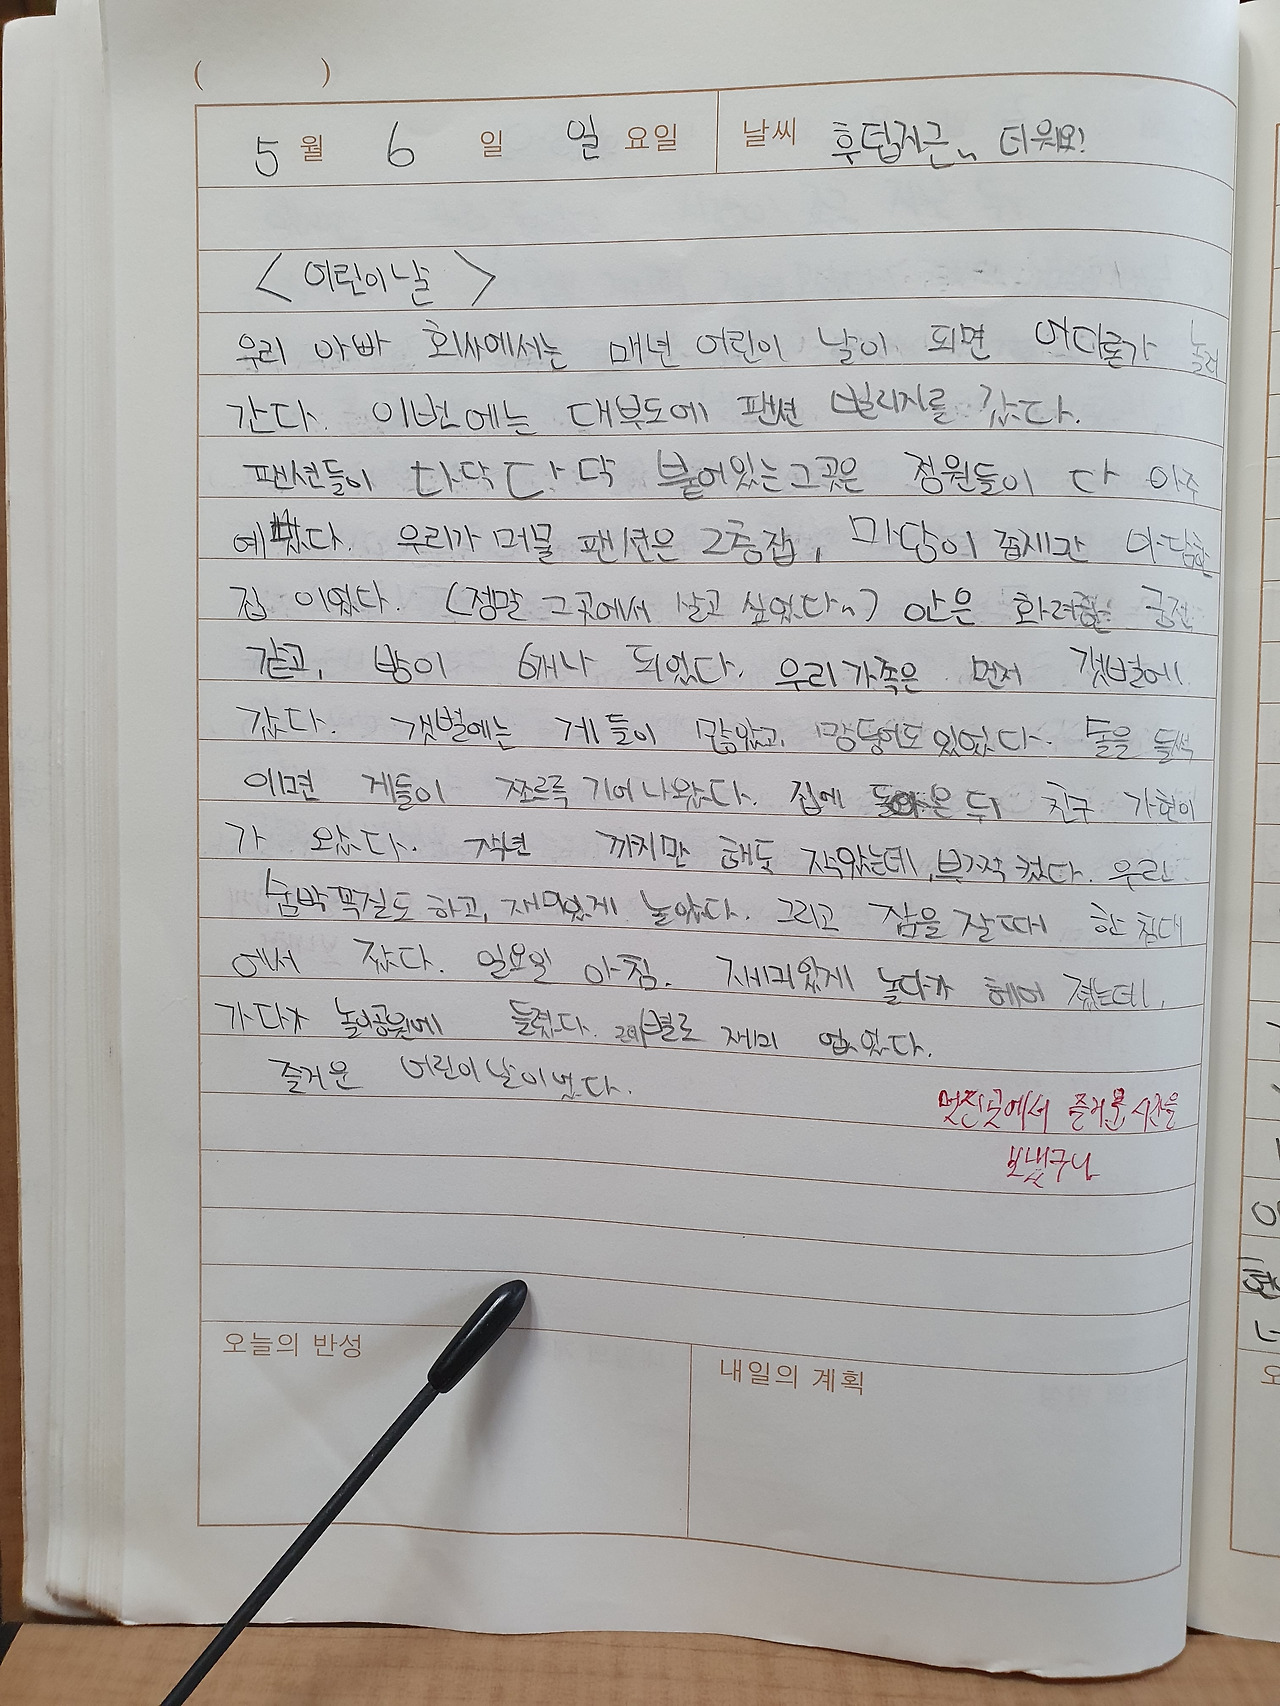 ( )
5 월 6 일 일 요일 날씨 후텁지근~ 더워요!
< 어린이날 >
우리 아빠 회사에서는 매년 어린이 날이 되면 어디론가 놀러
간다. 이번에는 대부도에 팬션 빌리지를 갔다.
팬션들이 다닥다닥 붙어있는 그곳은 정원들이 다 아주
예뻤다. 우리가 머물 팬션은 2층집, 마당이 좁지만 아담한
집 이었다. (정말 그곳에서 살고 싶었다~) 안은 화려한 궁전
같고, 방이 6개나 되었다. 우리가족은 먼저 갯벌에
갔다. 갯벌에는 게들이 많았고, 망둥어도 있었다. 돌을 들썩
이면 게들이 쪼르륵 기어나왔다. 집에 돌아온 뒤 친구 가현이
가 왔다. 작년 까지만 해도 작았는데, 부쩍 컸다. 우린
숨박꼭질도 하고, 재미있게 놀았다. 그리고 잠을 잘때 한 침대
에서 잤다. 일요일 아침. 재미있게 놀다가 헤어 졌는데,
가다가 놀이공원에 들렸다. 별로 재미 없었다.
즐거운 어린이날이었다.
멋진곳에서 즐거운 시간을
보냈구나
오늘의 반성
내일의 계획